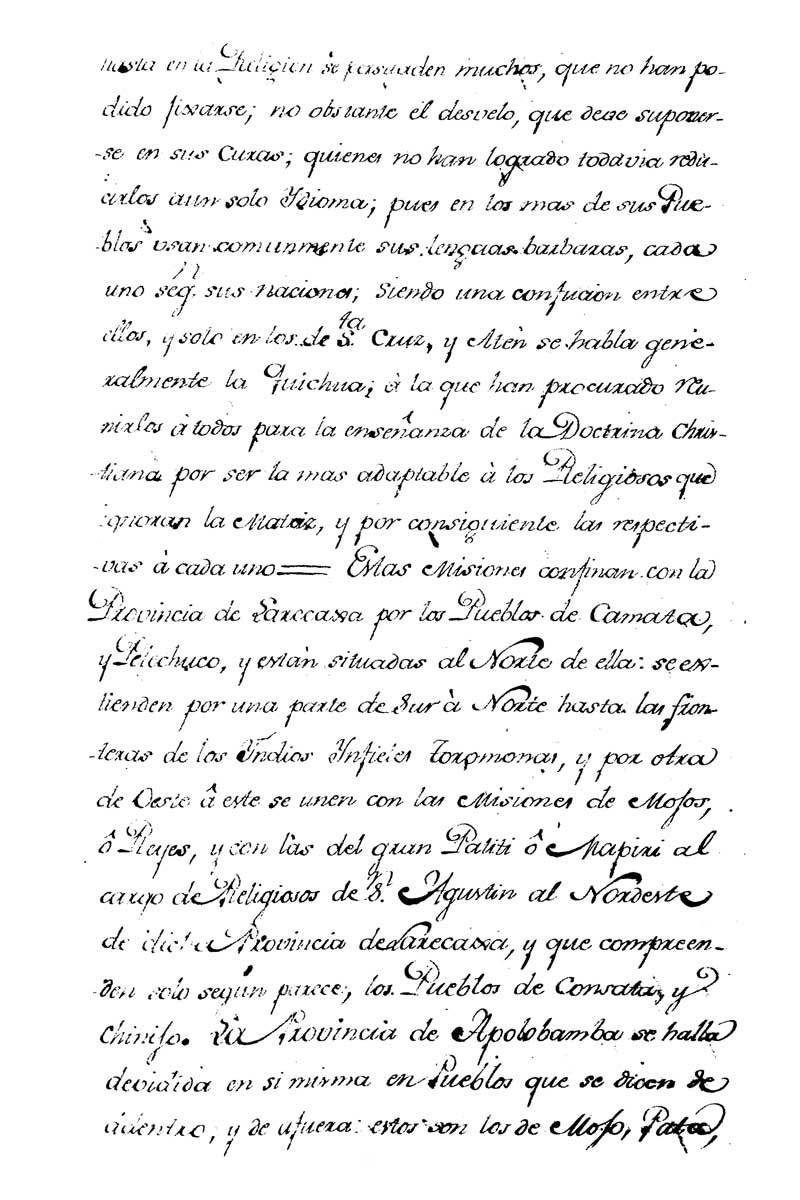 hasta en la Religion se persuaden muchos, que no han po-
dido fixarse; no obstante el desvelo, que deve suponer-
-se en sus Curas; quienes no han logrado todavia redu-
cirlos à un solo Ydioma; pues en los mas de sus Pue-
blos usan comunmente sus lenguas barbaras, cada
uno seg.n sus naciones; siendo una confucion entre
ellos, y solo en los de S.ta Cruz, y Atèn se habla gene-
ralmente la Quichua; à la que han procurado reu-
nirlos à todos para la enseñanza de la Doctrina Chris-
-tiana por ser la mas adaptable à los Religiosos que
ignoran la Matriz, y por consiguiente las respecti-
-vas à cada uno == Estas Misiones confinan con la
Provincia de Larecaxa por los Pueblos de Camata,
y Pelechuco, y estàn situadas al Norte de ella: se ex-
tienden por una parte de Sur à Norte hasta las fron-
-teras de los Yndios Ynfieles Toromonas, y por otra
de Oeste â este se unen con las Misiones de Mosos,
ô Reyes, y con làs del gran Patiti ô Mapiri al
cargo de Religiosos de S.n Agustin al Nordeste
de dicha Provincia de Larecaxa, y que compreen-
-den solo segùn parece, los Pueblos de Consata, y
Chiniso. La Provincia de Apolobamba se halla
devidida en si misma en Pueblos que se dicen de
àdentro, y de afuera: estos son los de Moso, Pata,